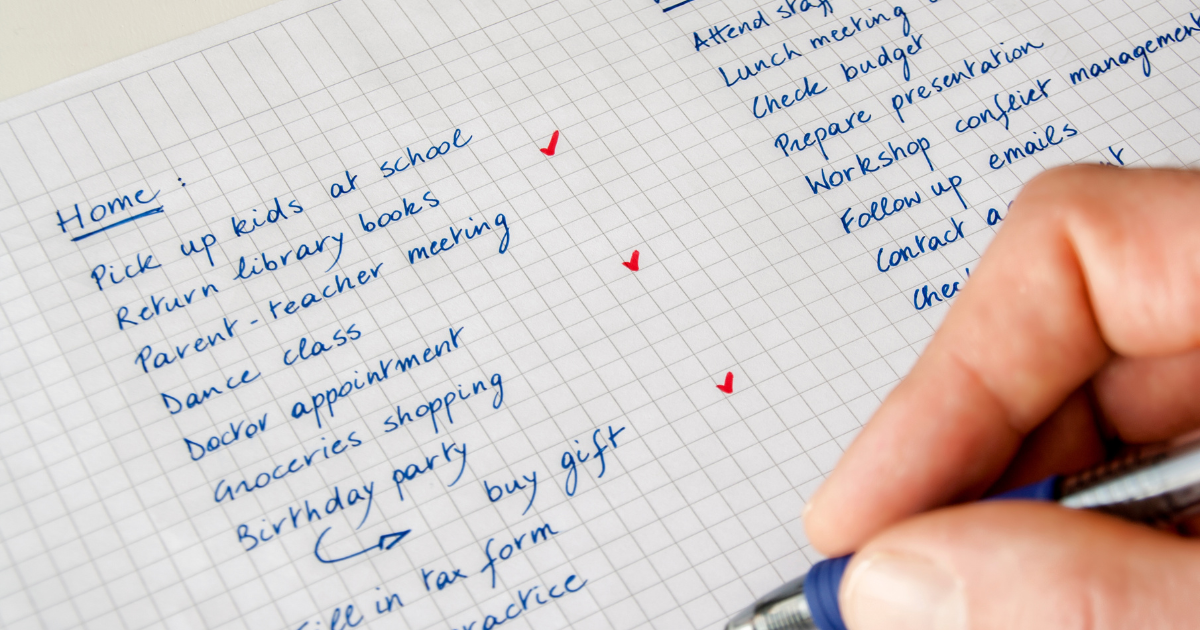 Home :
Pick up kids at school
Return library books
Parent-teacher meeting
Dance class
Doctor appointment
Groceries shopping
Birthday party
buy gift
in tax form
Attend staff
Lunch meeting
Check budget
Prepare presentation
Workshop conflict management
Follow up emails
Contact